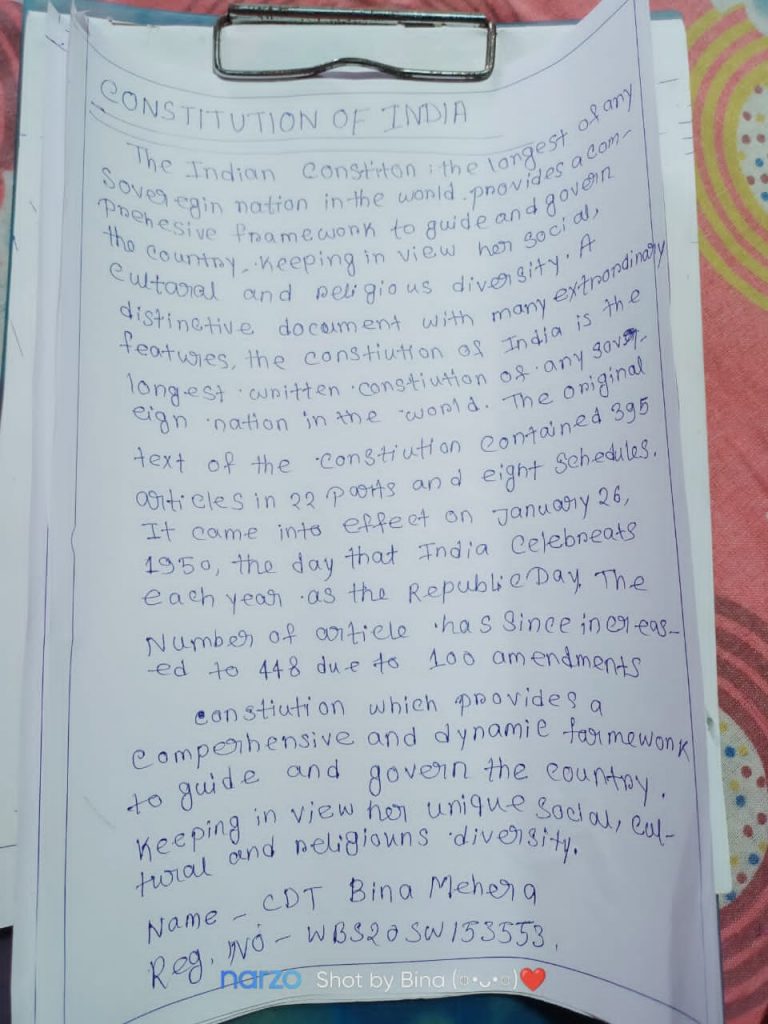 CONSTITUTION OF INDIA
The Indian Constiton : the longest of any
Soveregin nation in the world. provides a com-
prehesive framework to guide and govern
the country, keeping in view her social,
cultaral and religious diversity. A
distinctive document with many extrordinary
features, the constiution of India is the
longest written constiution of any sover-
eign nation in the world. The original
text of the constiution contained 395
articles in 22 parts and eight Schedules.
It came into effect on January 26,
1950, the day that India Celebreats
each year as the Republic Day. The
Number of article has since increas-
ed to 448 due to 100 amendments
constiution which provides a
comperhensive and dynamic farmework
to guide and govern the country.
Keeping in view her unique social, cul-
tural and religiouns diversity.
Name - CDT Bina Mehera
Reg. No - WBS20SW153553.
narzo Shot by Bina (◦•ᴗ•◦)❤️